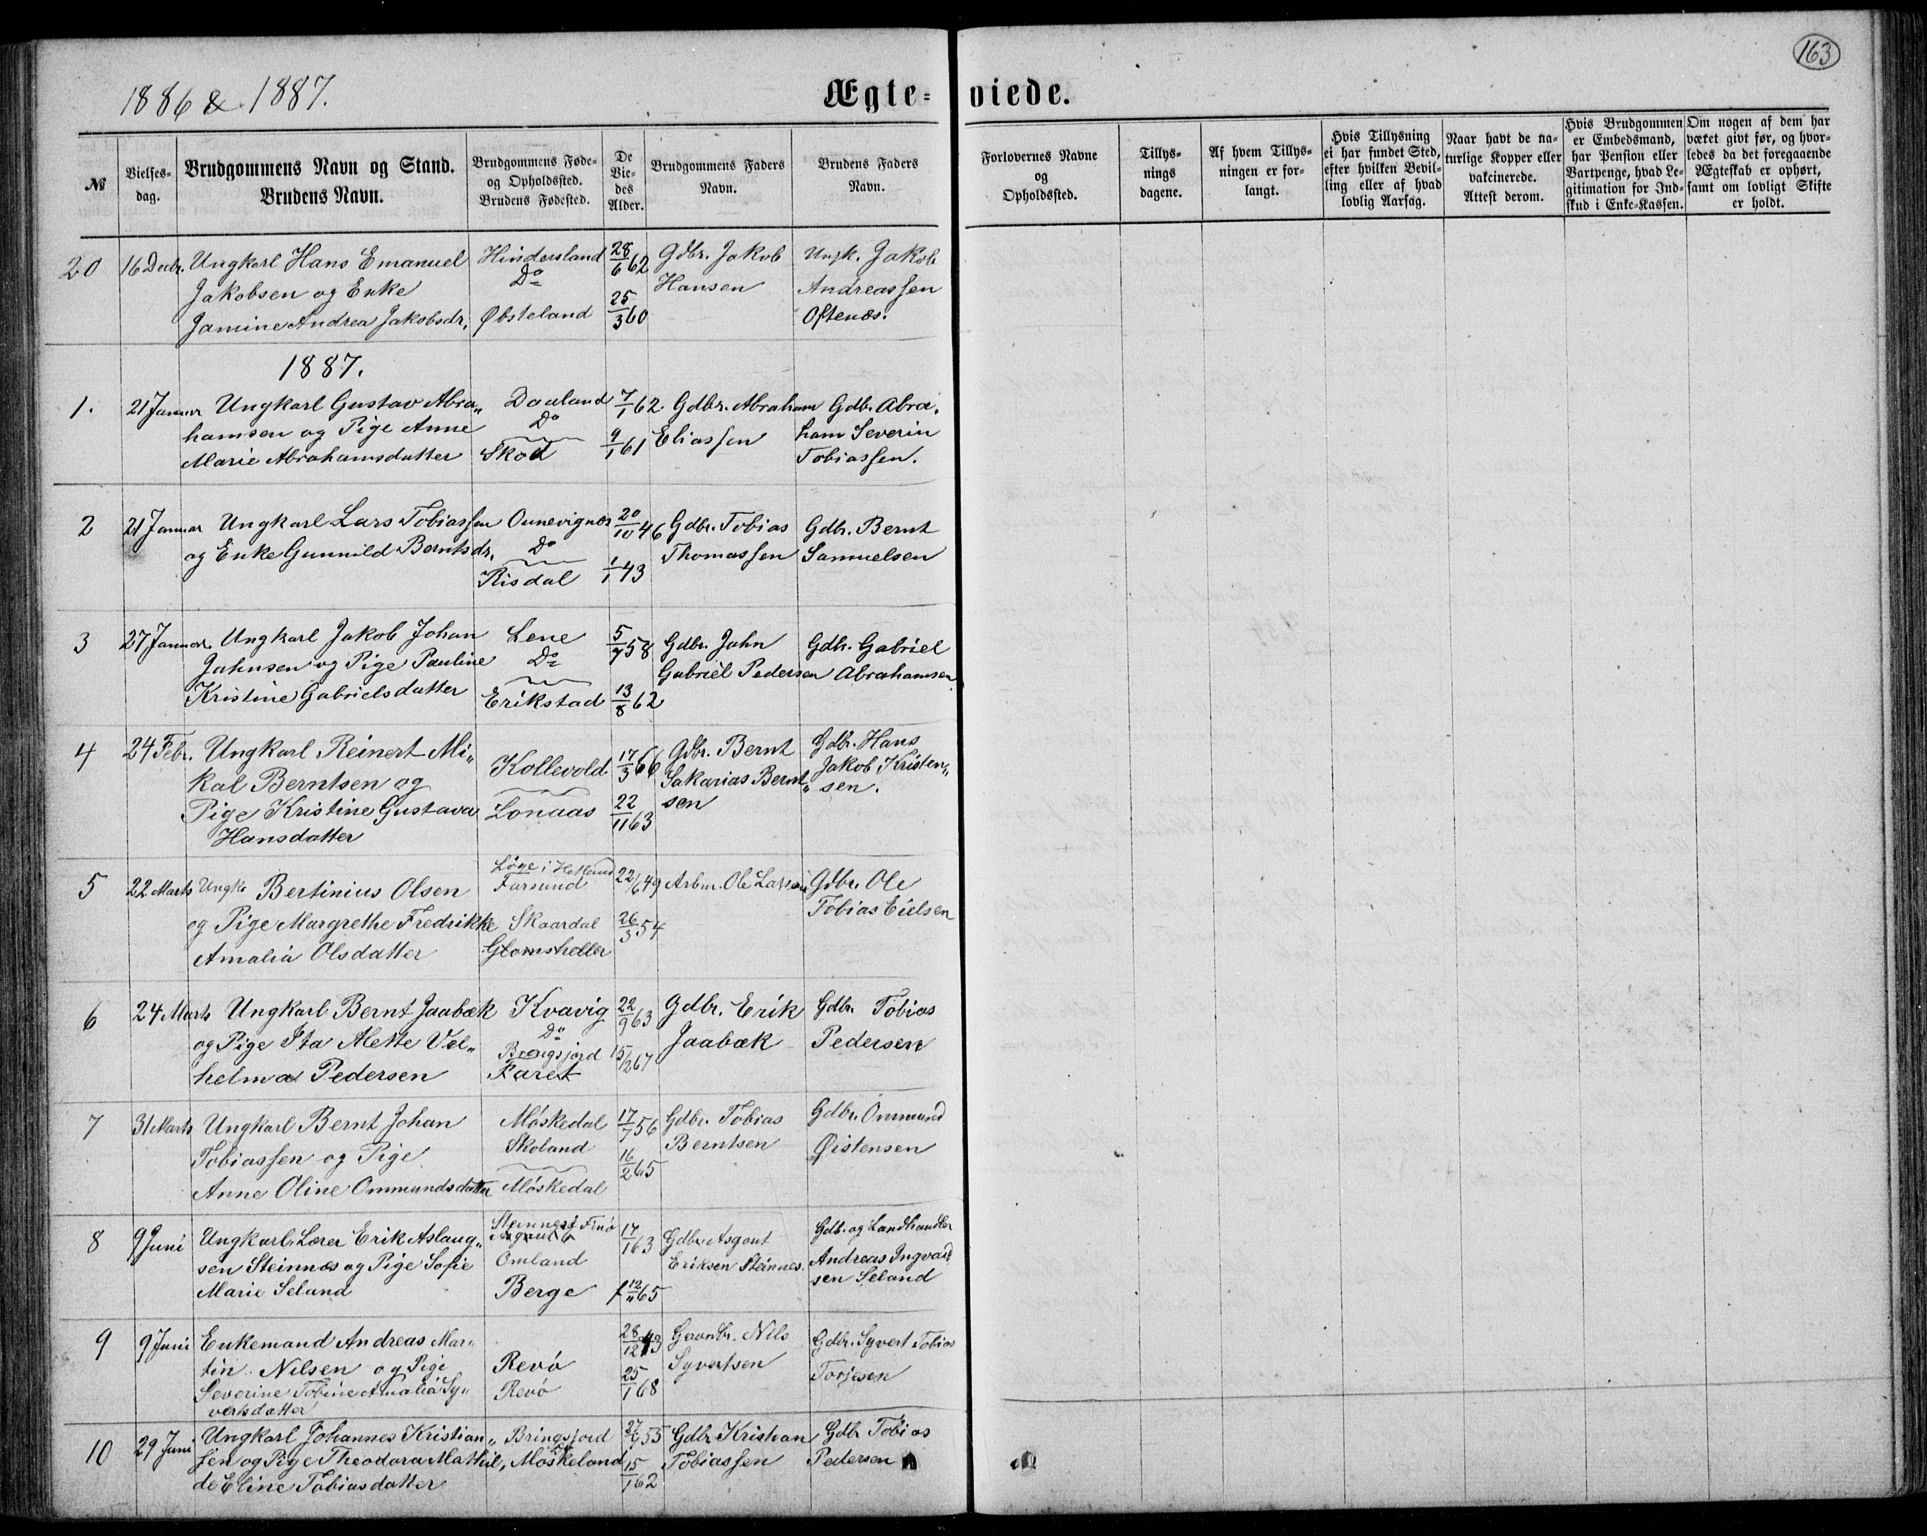 163
1886 & 1887.
Ægte=
viede.
№
Vielses-
dag.
Brudgommens Navn og Stand.
Brudens Navn.
Brudgommens Føde-
og Opholdssted.
Brudens Fødested.
De
Vie-
des
Alder.
Brudgommens Faders
Navn.
Brudens Faders
Navn.
Forlovernes Navne
og
Opholdssted.
Tillys-
nings
dagene.
Af hvem Tillys-
ningen er for-
langt.
Hvis Tillysning
ei har fundet Sted,
efter hvilken Bevil-
ling eller af hvad
lovlig Aarsag.
Naar havt de na-
turlige Kopper eller
vakcinerede.
Attest derom.
Hvis Brudgommen
er Embedsmand,
har Pension eller
Vartpenge, hvad Le-
gitimation for Ind-
skud i Enke-Kassen.
Om nogen af dem har
været givt før, og hvor-
ledes da det foregaaende
Ægteskab er ophørt,
samt om lovligt Skifte
er holdt.
20 16 Decbr. Ungkarl Hans Emanuel Hindersland 28/6 62 Gdbr. Jakob Ungk. Jakob
Jakobsen og Enke Do Hansen Andreassen
Jamine Andrea Jakobsdr. Øbsteland 25/3 60 Oftenæs.
1887.
1. 21 Januar Ungkarl Gustav Abra„ Daaland 7/1 62 Gdbr. Abraham Gdb. Abra„
hamsen og Pige Anne Do Eliassen ham Severin
Marie Abrahamsdatter Skod 9/1 61 Tobiassen.
2 21 Januar Ungkarl Lars Tobiassen Ounevignes 20/10 46 Gdbr. Tobias Gdbr. Bernt
og Enke Gunnild Berntsdr. Do Thomassen Samuelsen
Risdal 1/1 43
3 27 Januar. Ungkarl Jakob Johan Lene 5/7 58 Gdbr. Jahn Gdbr. Gabriel
Jahnsen og Pige Pauline Do Gabriel Pedersen Abrahamsen
Kristine Gabrielsdatter Erikstad 13/8 62
4 24 Febr. Ungkarl Reinert Mi„ Kollevold 17/3 66 Gdbr. Bernt Gdbr. Hans
kal Berntsen og Sakarias Bernt„ Jakob Kristen„
Pige Kristine Gustava Lonaas 22/11 63 sen sen.
Hansdatter
5 22 Marts Ungk. Bertinius Olsen Løge i Hetland Farsund 22/6 49 Arbm. Ole Larsen Gdbr. Ole
og Pige Margrethe Fredrikke Skaardal 26/3 54 Tobias Eielsen
Amalia Olsdatter Glomsheller
6 24 Marts Ungkarl Bernt Jaabæk Kvavig 22/9 63 Gdbr. Erik Gdbr. Tobias
og Pige Ita Alette Vil„ Do Bringsjord 15/12 67 Jaabæk Pedersen
helma Pedersen Faret
7 31 Marts Ungkarl Bernt Johan Møskedal 17/7 56 Gdbr. Tobias Gdbr. Ommund
Tobiassen og Pige Skoland 16/2 65 Berntsen Øistensen
Anne Oline Ommundsdatter Møskedal
8 9 Juni Ungkarl, Lærer Erik Aslaug„ Steinnes i Finø 17/1 63 Gdbr. Asgout Gdbr. og Landhandler
sen Steinnes og Pige Sofie Omland Eriksen Steinnes. Andreas Ingvald
Marie Selund Berge f 12/11 65 sen Seland
9 9 Juni Enkemand Andreas Mar„ 28/12 43 Gaardbr. Nils Gdbr. Syvert Tobias
tin Nilsen og Pige Revø 25/1 68 Syvertsen Torjesen
Severine Tobine Amalia Sy„ Revø
vertsdatter
10 29 Juni Ungkarl Johannes Kristian„ Bringsjord 27/7 55 Gdbr Kristian Gdbr Tobias
sen og Pige Theodora Mathil„ Møskeland 15/1 62 Tobiassen Pedersen
de Eline Tobiasdatter